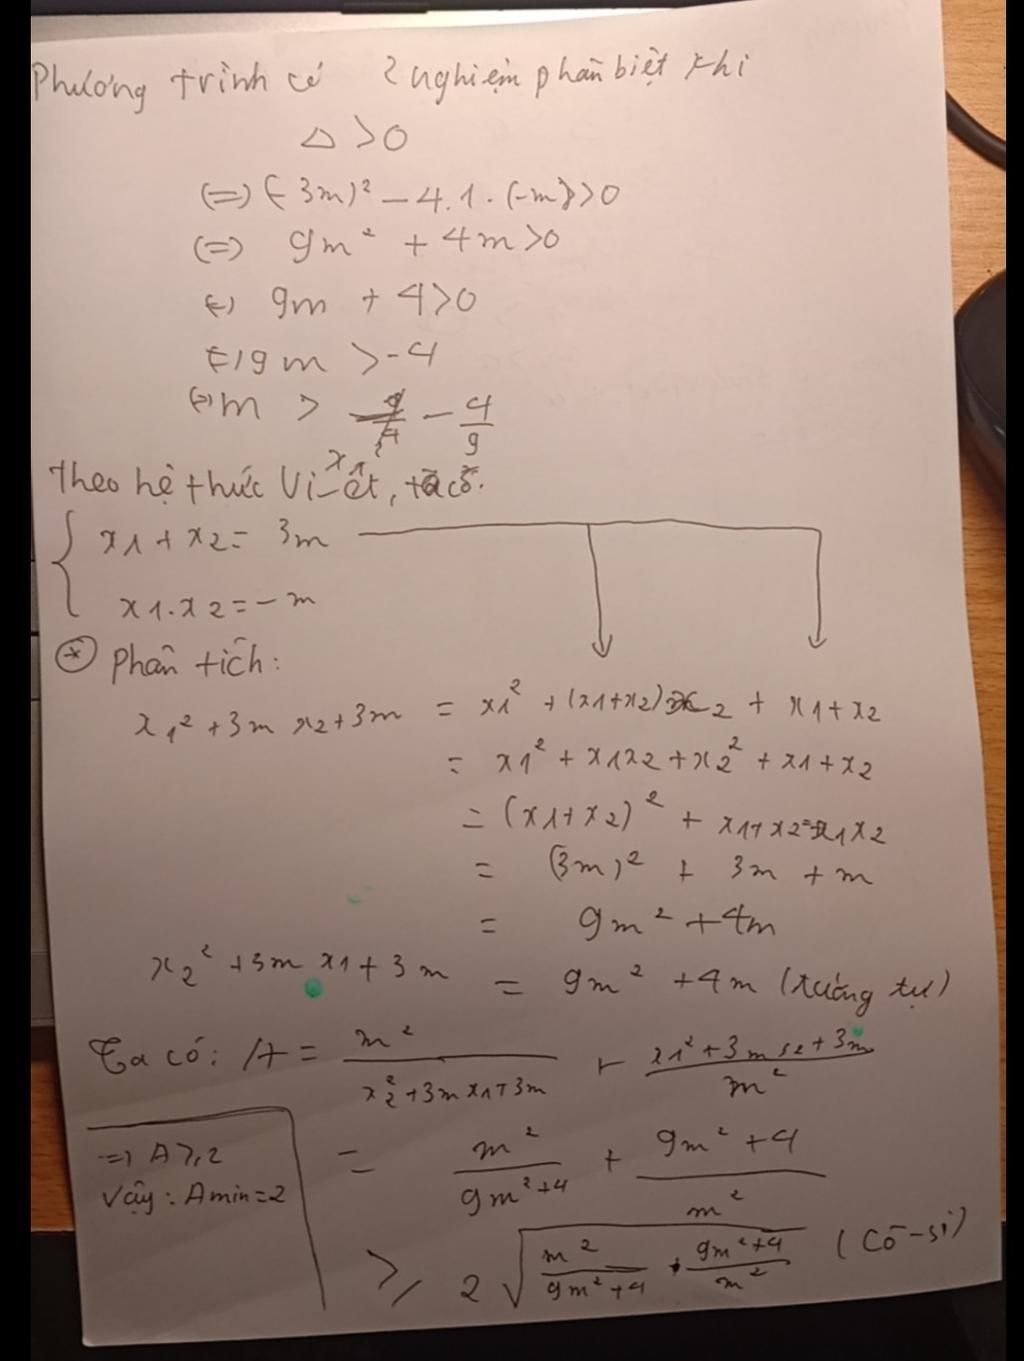 Phương trình có 2 nghiệm phân biệt khi
Δ > 0
(=) (-3m)² - 4.1.(-m) > 0
(=) 9m² + 4m > 0
(=) 9m + 4 > 0
(=) 9m > -4
(=) m > - 4/9
Theo hệ thức Vi-ét, ta có:
{ x1 + x2 = 3m
x1.x2 = -m
(*) Phân tích:
x1² + 3m x2 + 3m = x1² + (x1+x2)x2 + x1+x2
= x1² + x1x2 + x2² + x1+x2
= (x1+x2)² + x1+x2 - x1x2
= (3m)² + 3m + m
= 9m² + 4m
x2² + 3m x1 + 3m = 9m² + 4m (tương tự)
Ta có: A = m² / (x2² + 3m x1 + 3m) + (x1² + 3m x2 + 3m) / m²
= m² / (9m²+4) + (9m²+4) / m²
≥ 2 √( m² / (9m²+4) · (9m²+4) / m² ) (Cô-si)
=> A ≥ 2
Vậy: Amin = 2